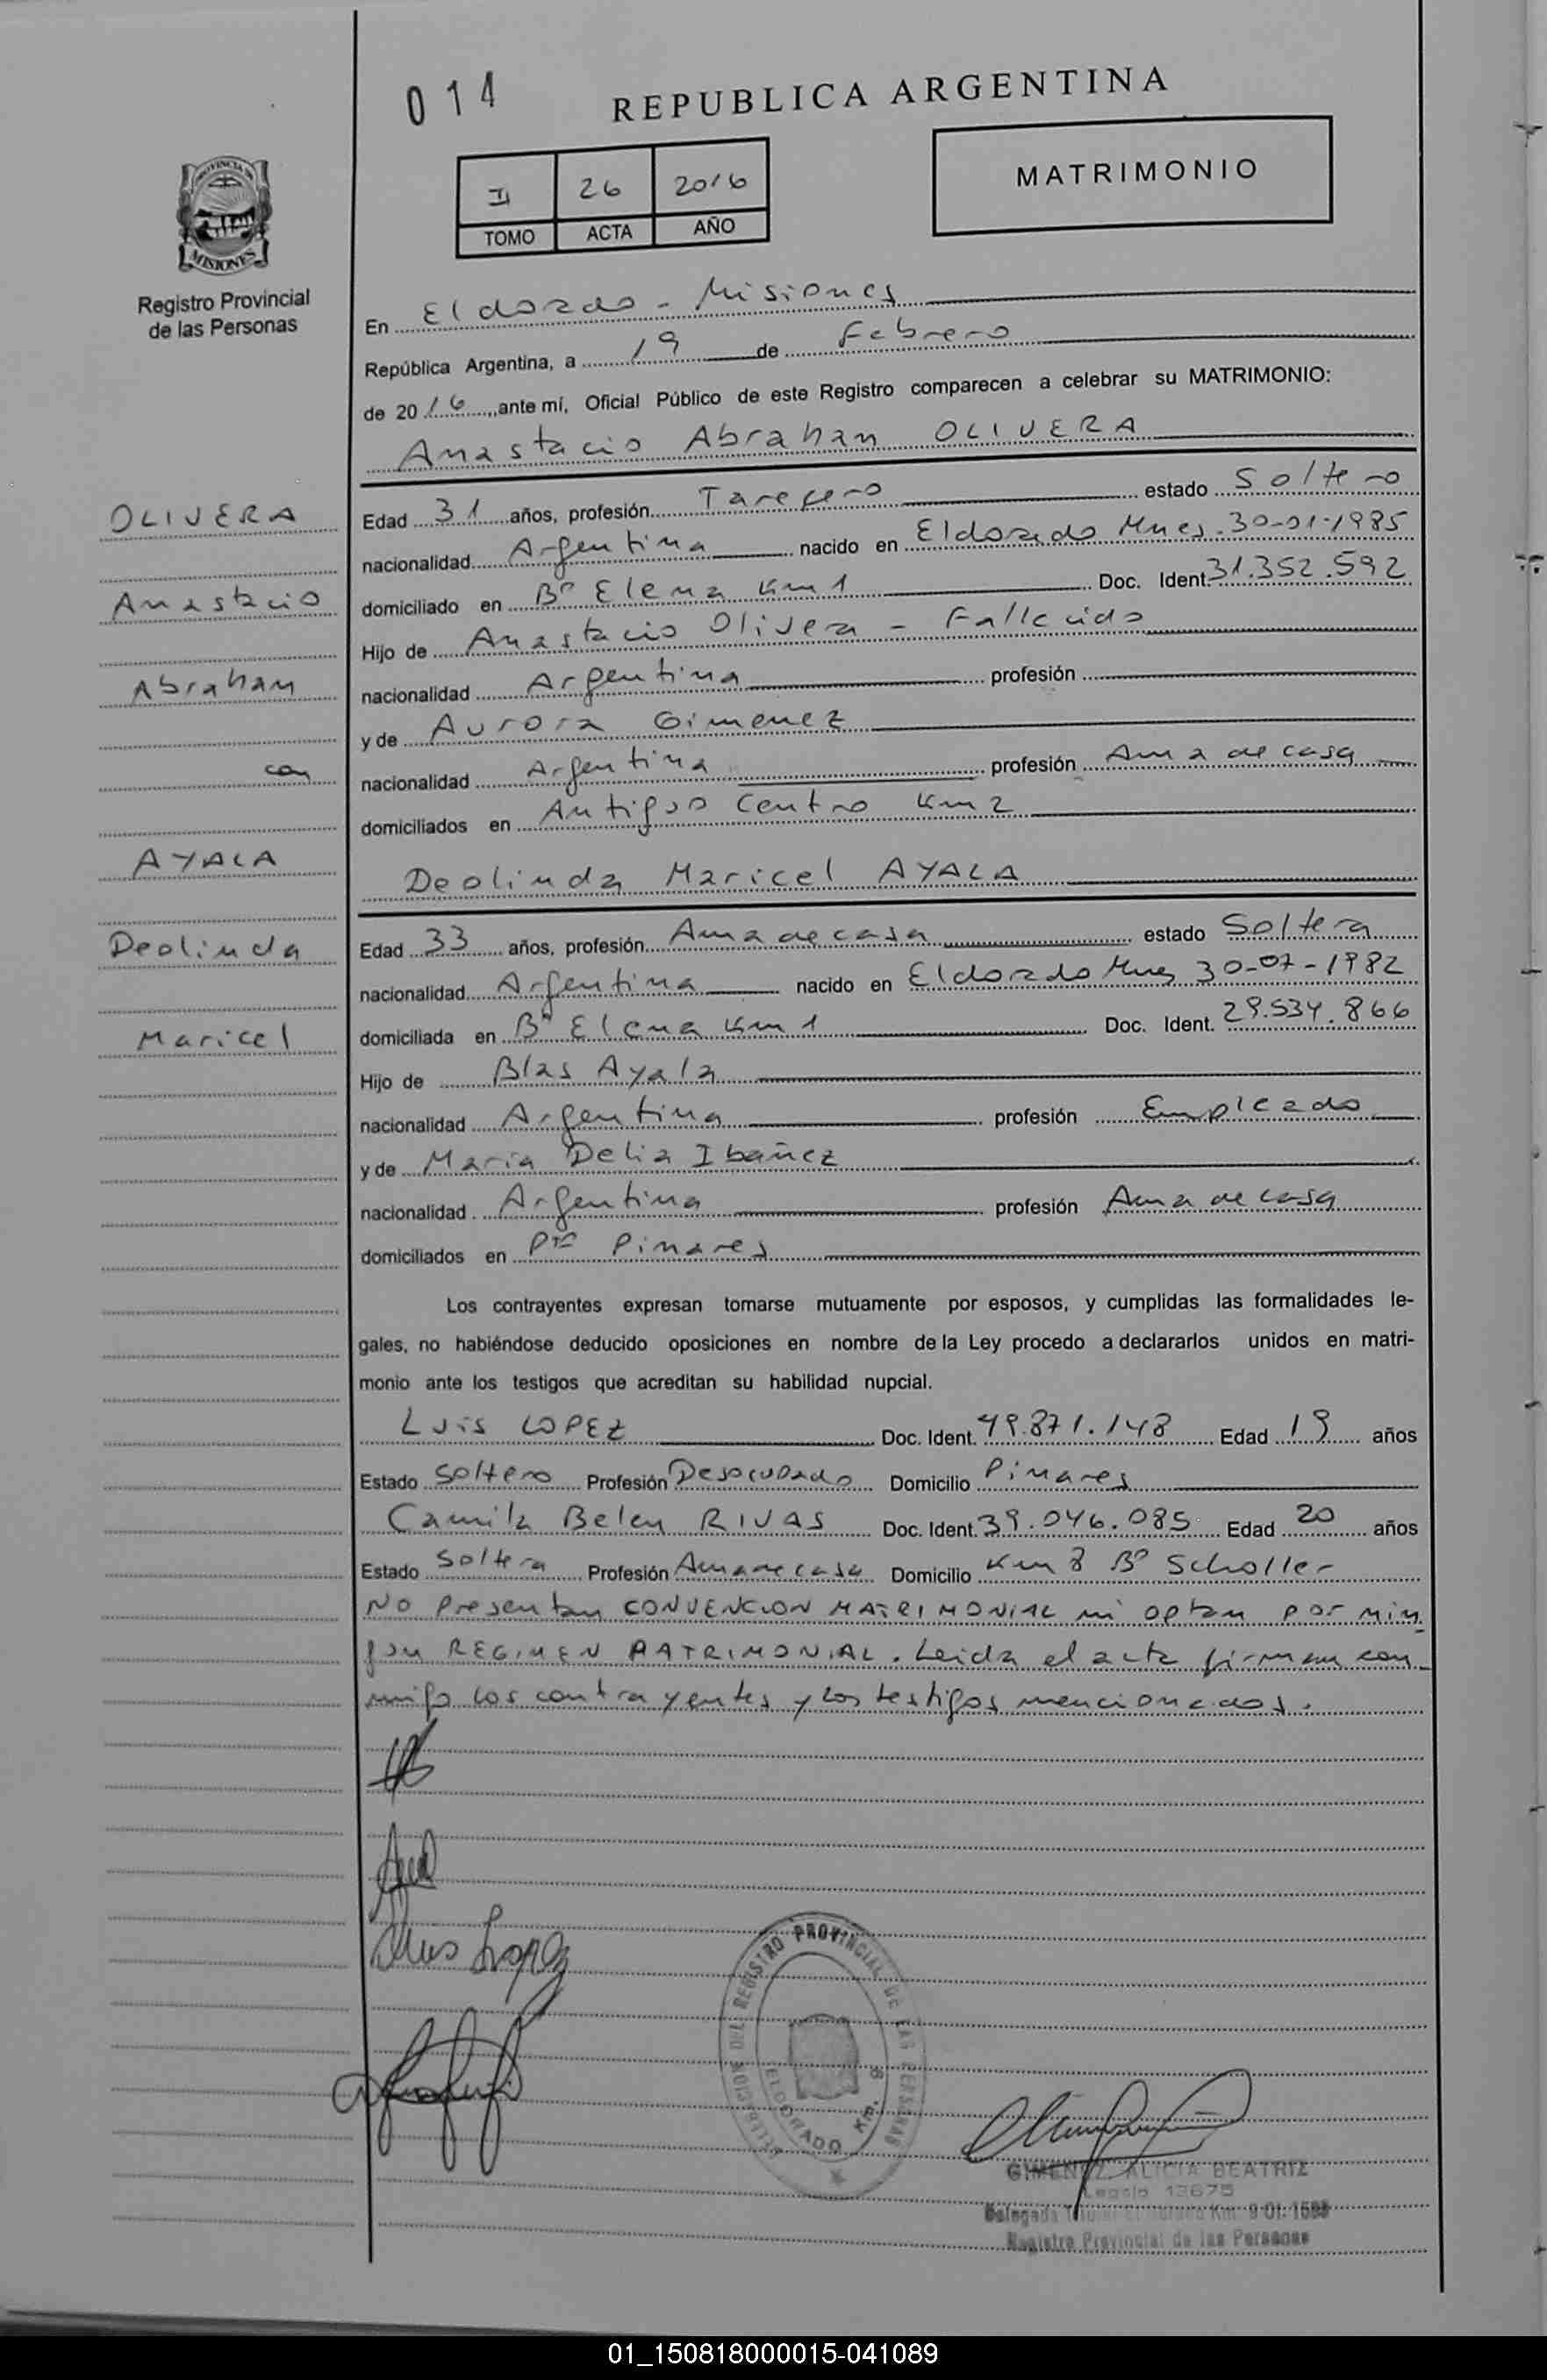 014
REPUBLICA ARGENTINA
PROVINCIA DE
MISIONES
Registro Provincial
de las Personas
II 26 2016
TOMO ACTA AÑO
MATRIMONIO
En Eldorado - Misiones
República Argentina, a 19 de Febrero
de 2016, ante mí, Oficial Público de este Registro comparecen a celebrar su MATRIMONIO:
Anastacio Abraham OLIVERA
OLIVERA
Anastacio
Abraham
con
AYALA
Deolinda
Maricel
Edad 31 años, profesión Tarefero estado Soltero
nacionalidad Argentina nacido en Eldorado Mnes. 30-01-1985
domiciliado en Bº Elena Km 1 Doc. Ident. 31.352.592
Hijo de Anastacio Olivera - Fallecido
nacionalidad Argentina profesión
y de Aurora Gimenez
nacionalidad Argentina profesión Ama de casa
domiciliados en Antiguo Centro Km 2
Deolinda Maricel AYALA
Edad 33 años, profesión Ama de casa estado Soltera
nacionalidad Argentina nacido en Eldorado Mnes 30-07-1982
domiciliada en Bº Elena Km 1 Doc. Ident. 29.534.866
Hijo de Blas Ayala
nacionalidad Argentina profesión Empleado
y de María Delia Ibañez
nacionalidad Argentina profesión Ama de casa
domiciliados en Pto Pinares
Los contrayentes expresan tomarse mutuamente por esposos, y cumplidas las formalidades le-
gales, no habiéndose deducido oposiciones en nombre de la Ley procedo a declararlos unidos en matri-
monio ante los testigos que acreditan su habilidad nupcial.
Luis LOPEZ Doc. Ident. 49.871.148 Edad 19 años
Estado Soltero Profesión Desocupado Domicilio Pinares
Camila Belen RIVAS Doc. Ident. 39.046.085 Edad 20 años
Estado Soltera Profesión Ama de casa Domicilio Km 8 Bº Scholler
No presentan CONVENCION MATRIMONIAL ni optan por nin-
gun REGIMEN PATRIMONIAL. Leida el acta firman con-
migo los contrayentes y los testigos mencionados.
Luis Lopez
DELEGACION DEL REGISTRO PROVINCIAL DE LAS PERSONAS
ELDORADO KM. 8
GIMENEZ ALICIA BEATRIZ
Legajo 13675
Delegada Titular Eldorado Km. 9 Of. 1588
Registro Provincial de las Personas
01_150818000015-041089